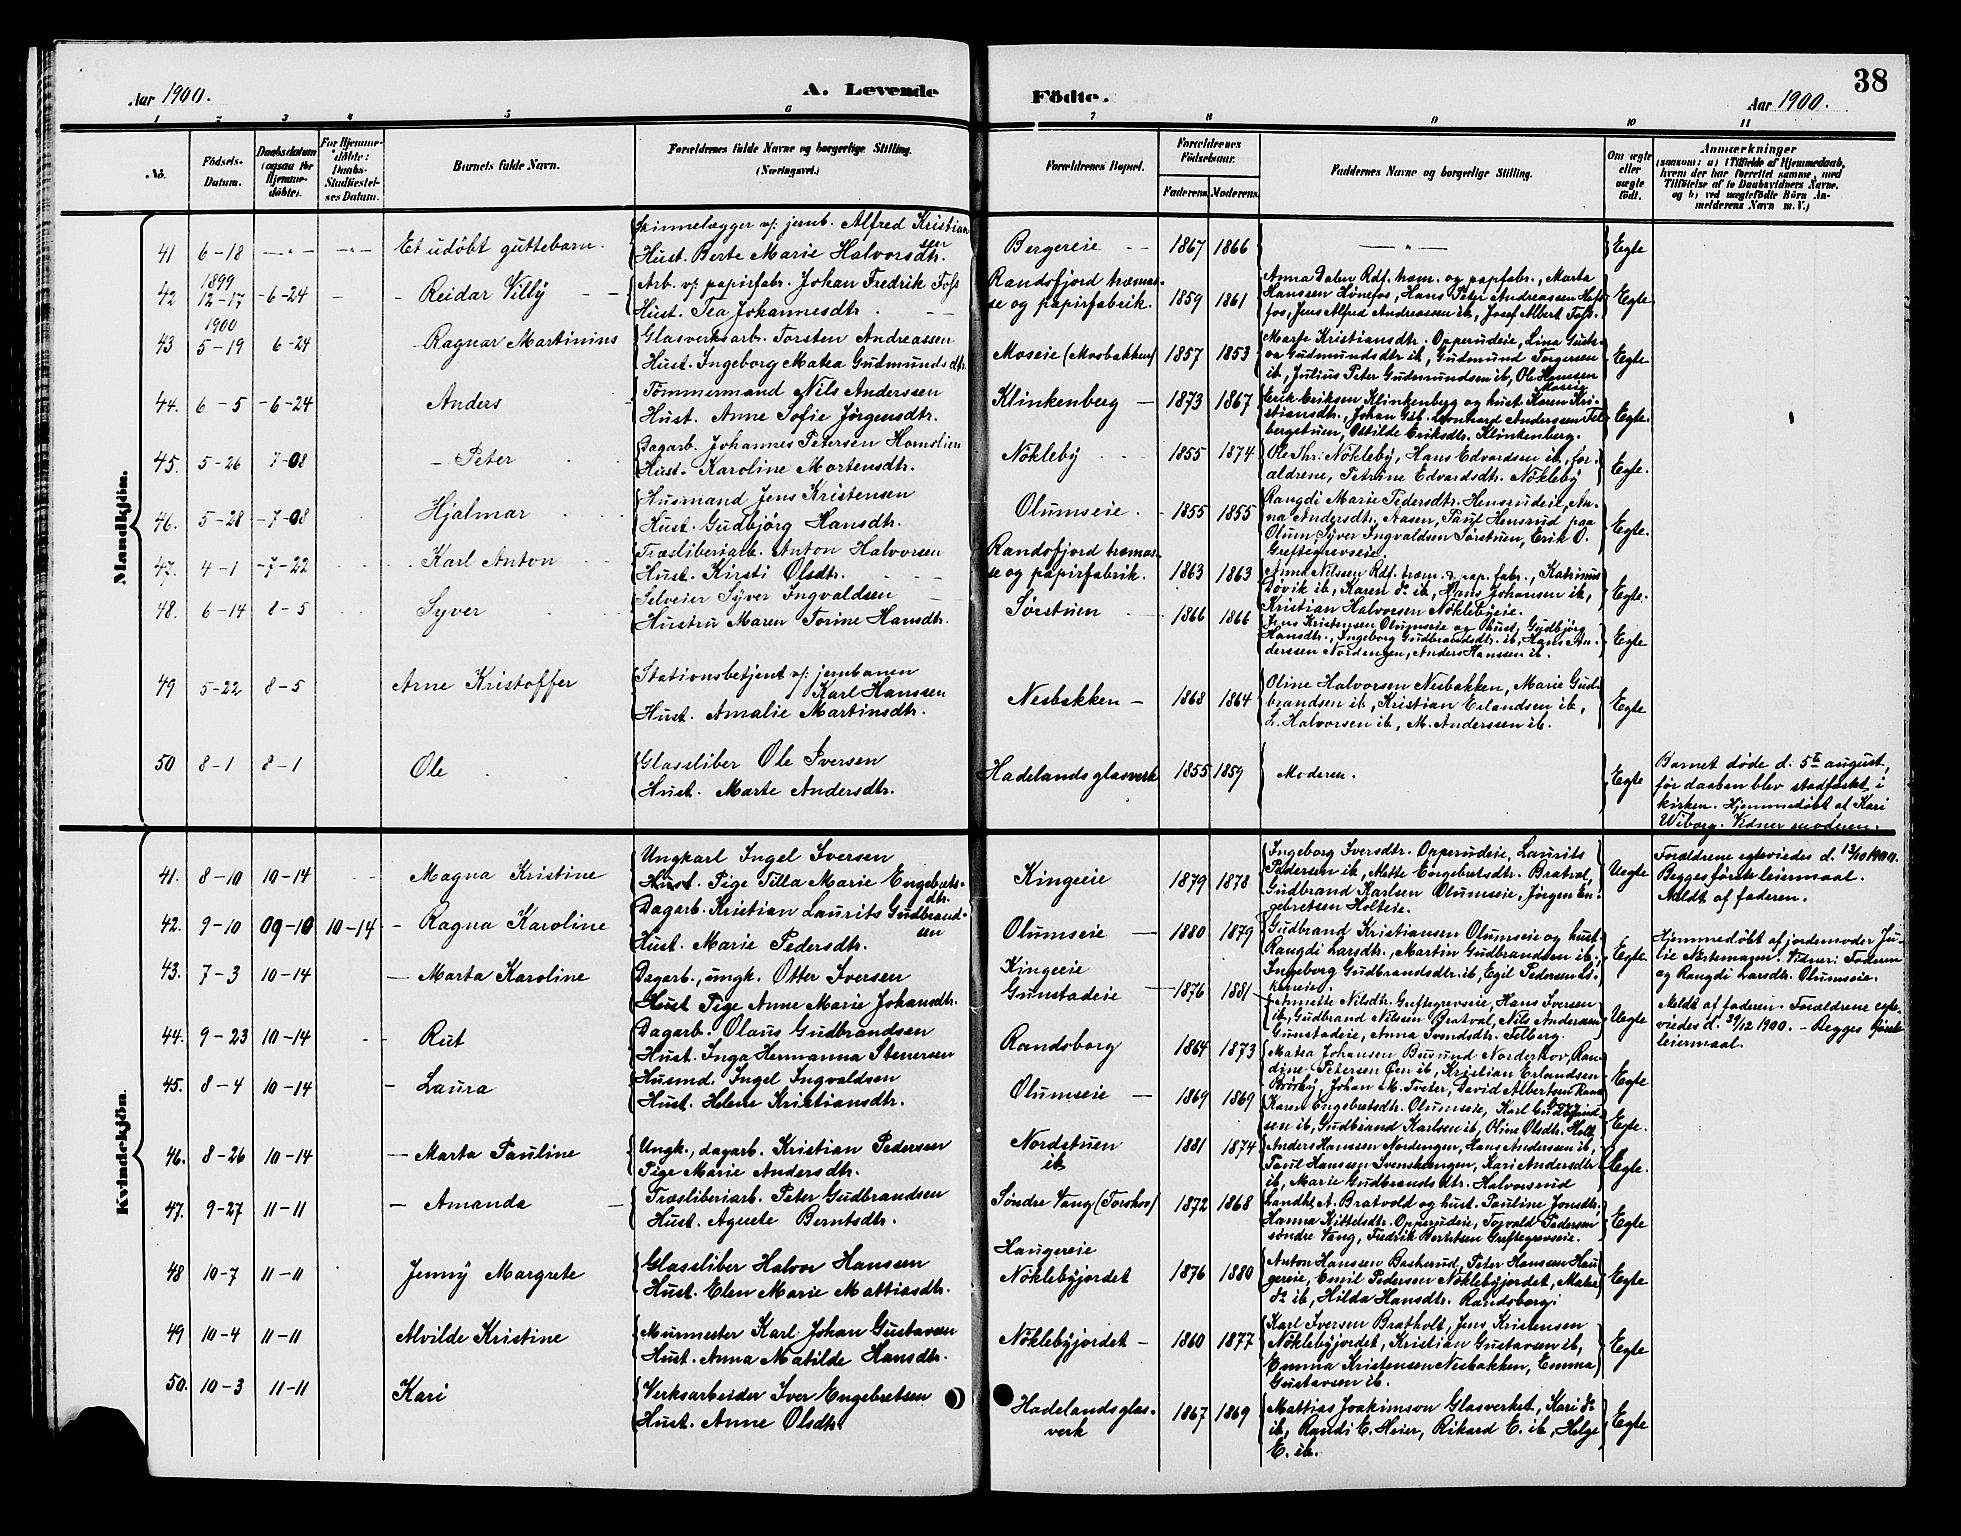 38
Aar 1900.
A. Levende
Födte.
Aar 1900.
1 2 3 4 5 6 7 8 9 10 11
No.
Födsels-
Datum.
Daabsdatum
(ogsaa for
Hjemme-
döbte).
For Hjemme-
döbte:
Daabs-
Stadfæstel-
ses Datum.
Barnets fulde Navn.
Forældrenes fulde Navne og borgerlige Stilling.
(Næringsvei.)
Forældrenes Bopæl.
Forældrenes
Födselsaar.
Faderens. Moderens.
Faddernes Navne og borgerlige Stilling.
Om ægte
eller
uægte
født.
Anmærkninger
(saasom: a) (Tilfælde af Hjemmedaab,
hvem der har forrettet samme, med
Tilföielse af to Daabsvidners Navne,
og b) ved uægtefödte Börn An-
melderens Navn m. V.)
Mandkjön.
41 6-18 -„- -„- Et udöbt guttebarn.
Skinnelægger v/ jernb. Alfred Kristian
sen
Hust. Berte Marie Halvorsdtr.
Bergereie 1867 1866 -„- Egte
42 1899
12-17 6-24 Reidar Villy
Arb. v/ papirfabr. Johan Fredrik Foss
Hust. Tea Johannesdtr.
Randsfjord træmas-
se og papirfabrik. 1859 1861
Anna Dalen Rdf. træm. og papfabr., Marta
Hanssen Hönefos, Hans Petr Andreassen
fos, Jens Alfred Andreassen ib, Josef Albert Foss.
Egte.
43 1900
5-19 6-24 Ragnar Martinius
Glasverksarb. Torsten Andreassen
Hust. Ingeborg Matea Gudmundsdtr.
Moseie (Mosbakken) 1857 1853
Marte Kristiansdtr. Opperudeie, Lina Gude-
Gudmundsdtr ib, Gudmund Torgersen
ib, Julius Peter Gudmundsen ib, Ole Hanssen
Moseie
Egte.
44. 6-5 6-24 Anders
Tömmermand Nils Anderssen
Hust. Anne Sofie Jörgensdtr.
Klinkenberg 1873 1867
Erik Eriksen Klinkenberg og hust. Karen Kri-
stiansdtr., Johan Leonhard Anderssen Fel-
bergstuen, Otilde Eriksdtr. Klinkenberg.
Egte.
45. 5-26 7-08 Peter
Dagarb. Johannes Petersen Homslien
Hust. Karoline Mortensdtr.
Nökleby 1855 1874
Ole Thr. Nökleby, Hans Edvardsen ib, for-
ældrene, Petrine Edvardsdtr. Nökleby
Egte.
46. 5-28 7-08 Hjalmar
Husmand Jens Kristensen
Hust. Gudbjörg Hansdtr.
Olumseie. 1855 1855
Rangdi Marie Pedersdtr. Hensrudeie, An-
na Andersdtr. Aasen, Paul Hensrud paa
Olum, Syver Ingvaldsen Sørstuen, Erik O.
Greftegrevseie.
Egte.
47. 4-1 7-22 Karl Anton
Træsliberiarb. Anton Halvorsen
Hust. Kirsti Olsdtr.
Randsfjord træmas-
se og papirfabrik. 1863 1863
Anna Nilsen Rdf. træm. & pap. fabr., Katrinus
Dövik ib, Karen do ib, Hans Johansen ib,
Kristian Halvorsen Nöklebyeie.
Egte.
48. 6-14 8-5 Syver
Selveier Syver Ingvaldsen
Hustru Maren Torine Hansdtr.
Sørstuen 1866 1866
Jens Kristensen Olumseie og hust. Gudbjörg
Hansdtr., Ingeborg Gudbrandsdtr. ib, Hans An-
derssen Nordengen, Anders Hanssen ib.
Egte
49 5-22 8-5 Arne Kristoffer
Stationsbetjent v/ jernbanen
Karl Hanssen
Hust. Amalie Martinsdtr.
Nesbakken 1868 1864
Oline Halvorsen Nesbakken, Marie Gud-
brandsen ib, Kristian Erlandsen ib,
L. Halvorsen ib, M. Anderssen ib.
Egte
50 8-1 8-1 Ole
Glassliber Ole Iversen
Hust. Marte Andersdtr.
Hadelands glasverk 1855 1859 Moderen. Egte
Barnet döde d. 5te august,
för daaben blev stadfæstet i
kirken. Hjemmedöbt af Kari
Wiborg. Vidner moderen.
Kvindekjön.
41. 8-10 10-14 Magna Kristine
Ungkarl Ingel Iversen
Hust. Pige Tilla Marie Engebrets-
dtr.
Kingeeie 1879 1878
Ingeborg Iversdtr. Opperudeie, Laurits
Pedersen ib, Mette Engebretsdtr. Bratval,
Gudbrand Karlsen Olumseie, Jörgen En-
gebretsen Holteie.
Uegte
Forældrene egteviedes d. 13/10 1900.
Begges förste leiermaal.
Meldt af faderen.
42. 9-10 09-10 10-14 Ragna Karoline
Dagarb. Kristian Laurits Gudbrand-
sen
Hust. Marie Pedersdtr.
Olumseie 1880 1879
Gudbrand Kristiansen Olumseie og hust.
Rangdi Larsdtr., Martin Gudbrandsen ib.
Ingeborg Gudbrandsdtr. ib, Egil Pedersen
Egte.
Hjemmedöbt af jordemoder Ju-
lie Nertemagn. Vidner: Faderen
og Rangdi Larsdtr. Olumseie.
43. 7-3 10-14 Marta Karoline
Dagarb., ungk. Otter Iversen
Hust. Pige Anne Marie Johansdtr.
Kingeeie
Gunstadeie 1876 1881
Annette Nilsdtr. Greftegrevseie, Hans Iversen
ib, Gudbrand Nilsen Bratval, Nils Andersen
Gunstadeie, Anna Svendsdtr. Felberg.
Uegte
Meldt af faderen. Forældrene egte-
viedes d. 29/12 1900. - Begges første
leiermaal.
44. 9-23 10-14 Rut
Dagarb. Olaus Gudbrandsen
Hust. Inga Hermanna Stenersen
Randsborg 1864 1873
Matea Johansen Busund Norderhov, Ran-
dine Petersen Öen ib, Kristian Erlandsen
Brörby, Johan M. Tveter, David Albertsen Rand-
borg.
Egte
45. 8-4 10-14 Laura
Husmd. Ingel Ingvaldsen
Hust. Helene Kristiansdtr.
Olumseie 1869 1869
Karen Engebretsdtr. Olumseie, Karl Gudbrand-
sen ib, Gudbrand Karlsen ib, Oline Olsdtr. Holt.
Egte.
46. 8-26 10-14 Marta Pauline
Ungk., dagarb. Kristian Pedersen
Pige Marie Andersdtr.
Nordstuen
ib 1881 1874
Anders Hanssen Nordengen, Hans Anderssen ib,
Paul Hanssen Svenskengen, Kari Andersdtr
ib, Marie Gudbrandsdtr. Halvorsrud
Egte.
47. 9-27 11-11 Amanda
Træsliberiarb. Peter Gudbrandsen
Hust. Agnete Berntsdtr.
Søndre Vang (Torshov) 1872 1868
Landh. A. Bratvold og hust. Pauline Jonsdtr.
Hanna Kittelsdtr. Opperudeie, Torvald Pedersen
søndre Vang, Fredrik Berntsen Greftegrevseie.
Egte
48 10-7 11-11 Jenny Margrete
Glassliber Halvor Hanssen
Hust. Elen Marie Mattiasdtr.
Haugereie
Nöklebyjordet 1876 1880
Anton Hanssen Baskerud, Peter Hanssen Hau-
gereie, Emil Pedersen Nöklebyjordet, Matea
do ib, Hilda Hansdtr. Randsborg
Egte
49 10-4 11-11 Alvilde Kristine
Murmester Karl Johan Gustavsen
Hust. Anna Matilde Hansdtr.
Nöklebyjordet 1860 1877
Karl Iversen Bratholt, Jens Kristensen
Nöklebyjordet, Kristian Gustavsen ib,
Emma Kristensen Nesbakken, Emma
Gustavsen ib.
Egte
50. 10-3 11-11 Kari
Verksarbeider Iver Engebretsen
Hust. Anne Olsdtr
Hadelands glas-
verk 1867 1869
Mattias Joakimson Glasverket, Kari do
ib, Randi E. Heier, Rikard E. ib, Helge
E. ib.
Egte